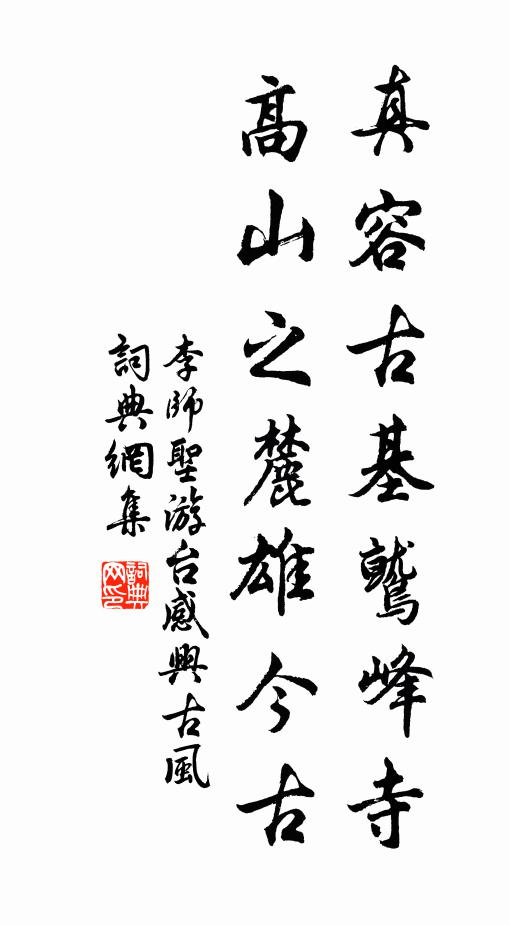 真容古基鷲峰寺
高山之麓雄今古
李師聖游台感興古風
詞典網集
詞典网印